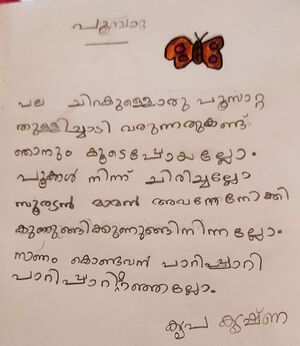 പൂമ്പാറ്റ
പല ചിറകുള്ളൊരു പൂമ്പാറ്റ
തുള്ളിച്ചാടി വരുന്നതുകണ്ട്
ഞാനും കൂടെപ്പോയല്ലോ.
പൂക്കൾ നിന്ന് ചിരിച്ചല്ലോ
സൂര്യൻ മാമൻ അവനെനോക്കി
നിന്നല്ലോ.
നാണം കൊണ്ടവൻ പാറിപ്പാറി
കൃപ കൃഷ്ണ